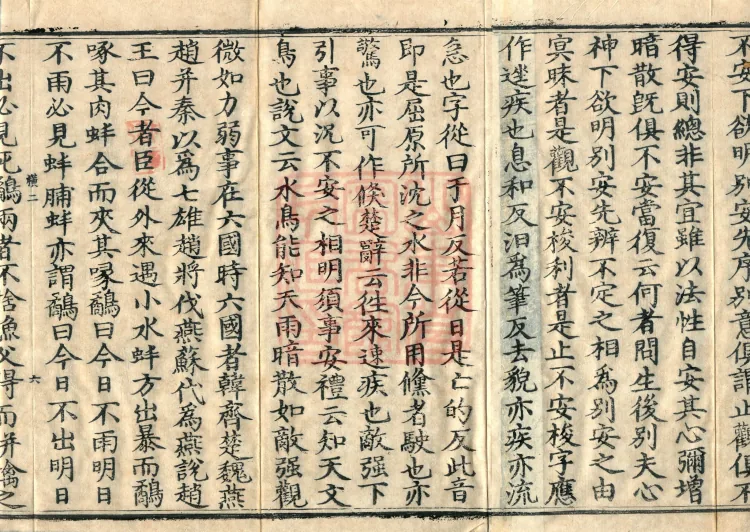 不安下欲明別安先序別意俱謂止觀俱不
得安則總非其宜雖以法性自安其心彌增
暗散既俱不安當復云何者問生後別夫心
神下欲明別安先辨不定之相為別安之由
冥昧者是觀不安梭利者是止不安梭字應
作逡疾也息和反汩為筆反去貌亦疾亦流
急也字從曰于月反若從日是亡的反此音
即是屈原所沈之水非今所用儵者駛也亦
驚也亦可作倏楚辭云往來速疾也敵強下
引事以況不安之相明須事安禮云知天文
鳥也說文云水鳥能知天雨暗散如敵强觀
微如力弱事在六國時六國者韓齊楚魏燕
趙并秦以為七雄趙將伐燕蘇代為燕說趙
王曰今者臣從外來遇小水蚌方出暴而鷸
啄其肉蚌合而夾其喙鷸曰今日不雨明日
不雨必見蚌脯蚌亦謂鷸曰今日不出明日
六
不出必見死鷸兩者不捨漁父得而并擒之